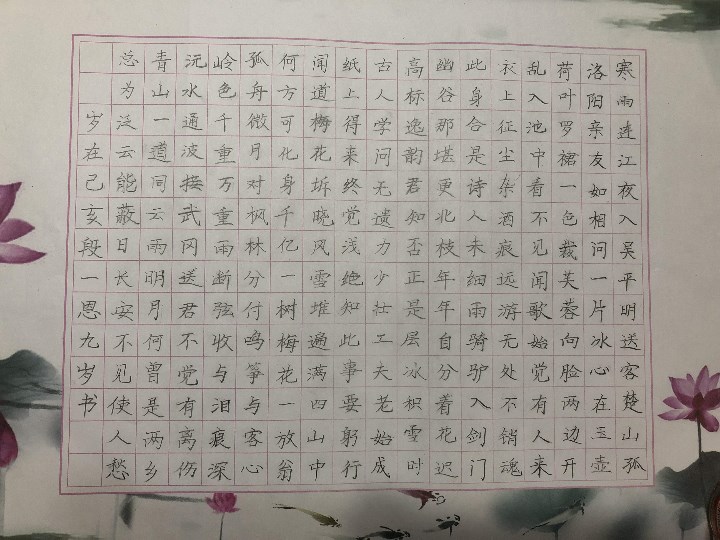 寒雨连江夜入吴平明送客楚山孤
洛阳亲友如相问一片冰心在玉壶
荷叶罗裙一色裁芙蓉向脸两边开
乱入池中看不见闻歌始觉有人来
衣上征尘杂酒痕远游无处不销魂
此身合是诗人未细雨骑驴入剑门
幽谷那堪更北枝年年自分着花迟
高标逸韵君知否正是层冰积雪时
古人学问无遗力少壮工夫老始成
纸上得来终觉浅绝知此事要躬行
闻道梅花坼晓风雪堆遍满四山中
何方可化身千亿一树梅花一放翁
孤舟微月对枫林分付鸣筝与客心
岭色千重万重雨断弦收与泪痕深
沅水通波接武冈送君不觉有离伤
青山一道同云雨明月何曾是两乡
总为泛云能蔽日长安不见使人愁
岁在己亥段一恩九岁书